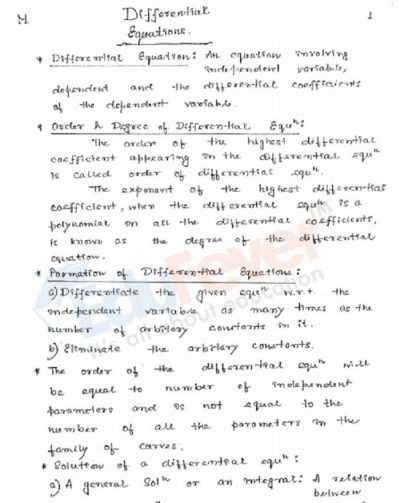 M
Differential
1
Equations.
* Differential Equation: An equation involving
independent variable,
dependent and the differential coefficients
of the dependent variable.
* Order & Degree of Differential Equⁿ:
The order of the highest differential
coefficient appearing in the differential equⁿ
is called order of differential equⁿ.
The exponent of the highest differential
coefficient, when the differential equⁿ is a
polynomial on all the differential coefficients,
is known as the degree of the differential
equation.
* Formation of Differential Equations:
a) Differentiate the given equⁿ w.r.t. the
independent variable as many times as the
number of arbitary constants in it.
b) Eliminate the arbitary constants.
* The order of the differential equⁿ will
be equal to number of independent
parameters and is not equal to the
number of all the parameters in the
family of curves.
* Solution of a differential equⁿ:
a) A general Solⁿ or an integral: A relation
between
EduFever
We're all about education